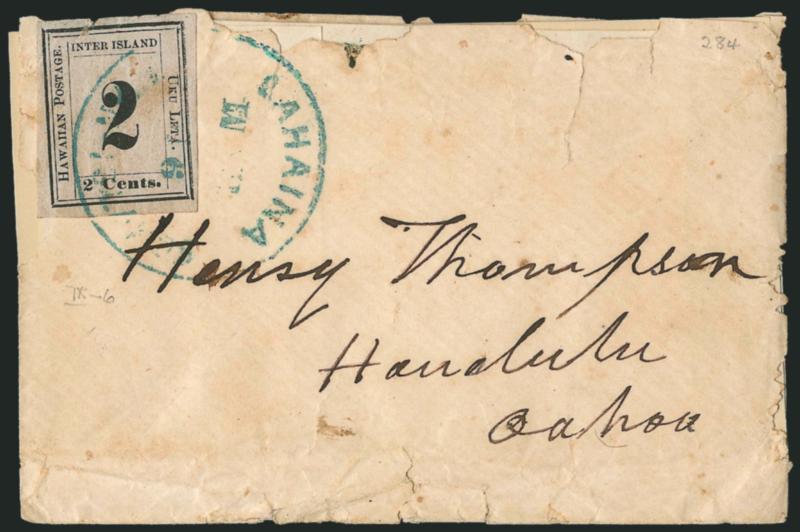 INTER ISLAND
HAWAIIAN POSTAGE.
2
UKU LETA.
2 Cents.
LAHAINA
6
284
Henry Thompson
Honolulu
Oahou
IX-6